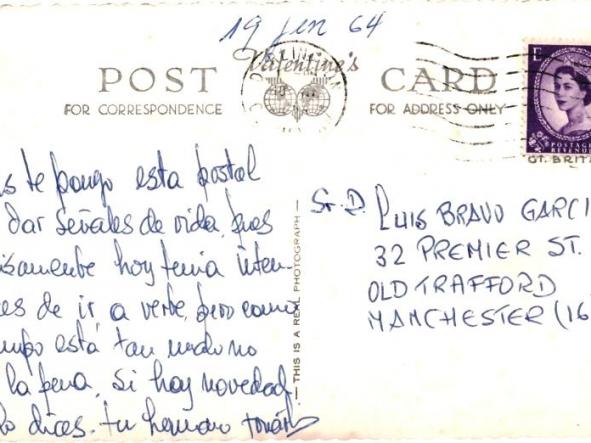 19 Jen 64
Valentine's
POST CARD
FOR CORRESPONDENCE FOR ADDRESS ONLY
E
POSTAGE
REVENUE
GT. BRIT
s te pongo esta postal
dar señales de vida, pues
isamente hoy tenia inten-
es de ir a verte, pero como
mpo está tan malo no
la pena. Si hay novedad
lo dices. tu hermano Tomás
— THIS IS A REAL PHOTOGRAPH —
Sr. D. LUIS BRAVO GARCI
32 PREMIER ST.
OLD TRAFFORD
MANCHESTER (16